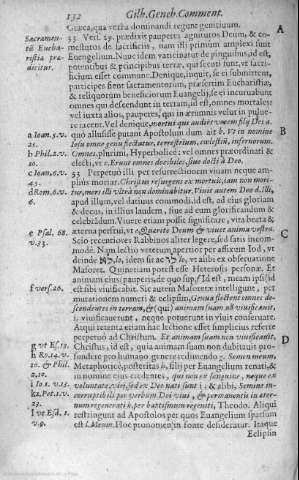 132 Gilb. Geneb. Comment.
Græca, qua verba dominandi regunt genitiuum.
53 Vers. 29. prædixit pauperes agnituros Deum, & co-
mestutos de sacrificiis, nam illi primùm amplexi sunt
Euangelium. Nunc idem vaticinatur de pinguibus, id est,
potentibus & principibus terræ, qui secuti sunt, vt sacri-
ficium esset commune. Denique, inquit, se ei submittent,
participes fient sacramentorum, præsertim Eucharistiæ,
& reliquorum beneficiorum Euangelij: se ei incuruabunt
omnes qui descendunt in terram, id est, omnes mortales:
vel iuxta alios, pauperes, qui in ærumnis velut in pulue-
re iacent. Vel denique, mortui qui audiet vocem filij Dei a.
quò allusisse putant Apostolum dum ait b. Vt in nomine
Iesu omne genu flectatur, terrestrium, cœlestium, infernorum.
Omnes, plurimi, Hyperbolicè: vel omnes prædestinati &
electi, vt c. Erunt omnes docibiles, siue docti à Deo.
53 Perpetuò illi per resurrectionem viuam neque am-
plius moriar. Christus resurgens ex mortuis, iam non mori-
tur, mors illi vltrà non dominabitur. Viuit autem Deo d. illi,
apud illum, vel datiuus commodi, id est, ad eius gloriam
& decus, in illius laudem, siue ad eum glorificandum &
celebrandum. Viuere etiam posse significare, vita beata &
æterna perfrui, vt e. Quærite Deum & viuet anima vestra.
Scio recentiores Rabbinos aliter legere, sed satis incom-
modè. Nam lectio veterum, aperta per affixum Iod, vt
deinde, לא lo, idem sit ac לו lo, vt alibi ex obseruatione
Masoreth. Quin etiam potest esse Heterosis personæ, Et
animam eius pauperis, de quo supr. f Id est, meam ipse id
est sibi viuificabit. Sic autem Masorete intelligunt, per
mutationem numeri & eclipsim, Genua flectent omnes de-
scendentes in terram, & (qui) animam suam nō viuificauit,
i. viuificauerunt, neque potuerunt in vitam conseruare.
Atqui retenta etiam hac lectione esset simplicius referre
perpetuò ad Christum. Et animam suam non viuificauit,
Christus, id est, quia animam suam non dubitauit pro-
fundere pro humano genere redimendo g. Semen meum,
Metaphoricè, posteritas h, filij per Euangelium renati, &
in nomine eius credentes, qui non ex sanguine, neque ex
voluntate viri, sed ex Deo nati sunt i: & alibi, Semine in-
corruptibili per verbum Dei viui, & permanentis in æter-
num regenerati k. per baptismum regeniti, Theodo. Aliqui
restringunt ad Apostolos per quos Euangelium sparsum
est l. Meum. Hoc pronomen in fonte desideratur. Itaque
Eclipsin
Sacramen-
tū Eucha-
ristiæ præ-
dicitur.
a Ioan. 5. v.
25.
b Phil. 2. v.
10.
c Ioan. 6. v.
45.
d Rom. 6. v.
e Psal. 68.
v. 33.
f vers. 26.
A
B
C
D